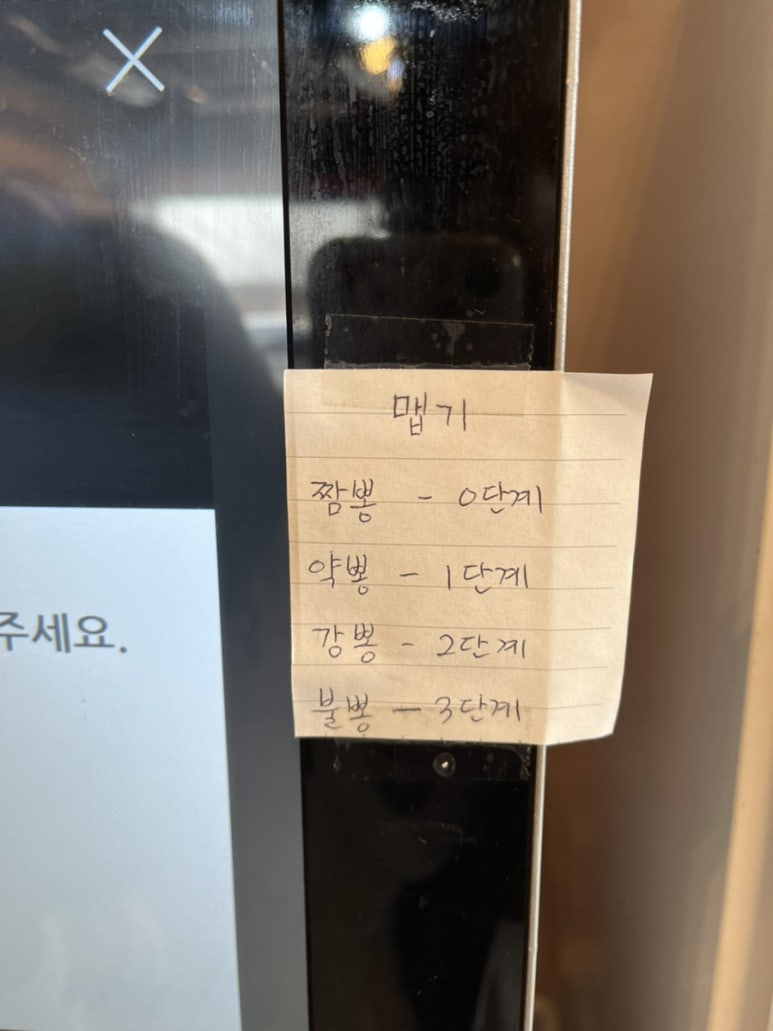 맵기
짬뽕 - 0단계
약뽕 - 1단계
강뽕 - 2단계
불뽕 - 3단계
주세요.